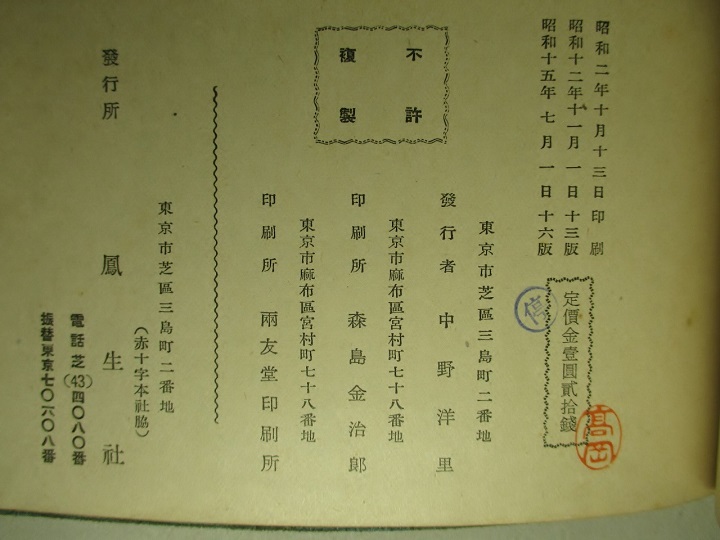 昭和二年十月十三日印刷
昭和十二年十一月一日十三版
昭和十五年七月一日十六版
定價金壹圓貳拾錢
停
高岡
不許
複製
東京市芝區三島町二番地
發行者 中野洋里
東京市麻布區宮村町七十八番地
印刷所 森島金治郎
東京市麻布區宮村町七十八番地
印刷所 兩友堂印刷所
東京市芝區三島町二番地
(赤十字本社脇)
發行所 鳳生社
電話芝(43)四〇八〇番
振替東京七〇六〇八番